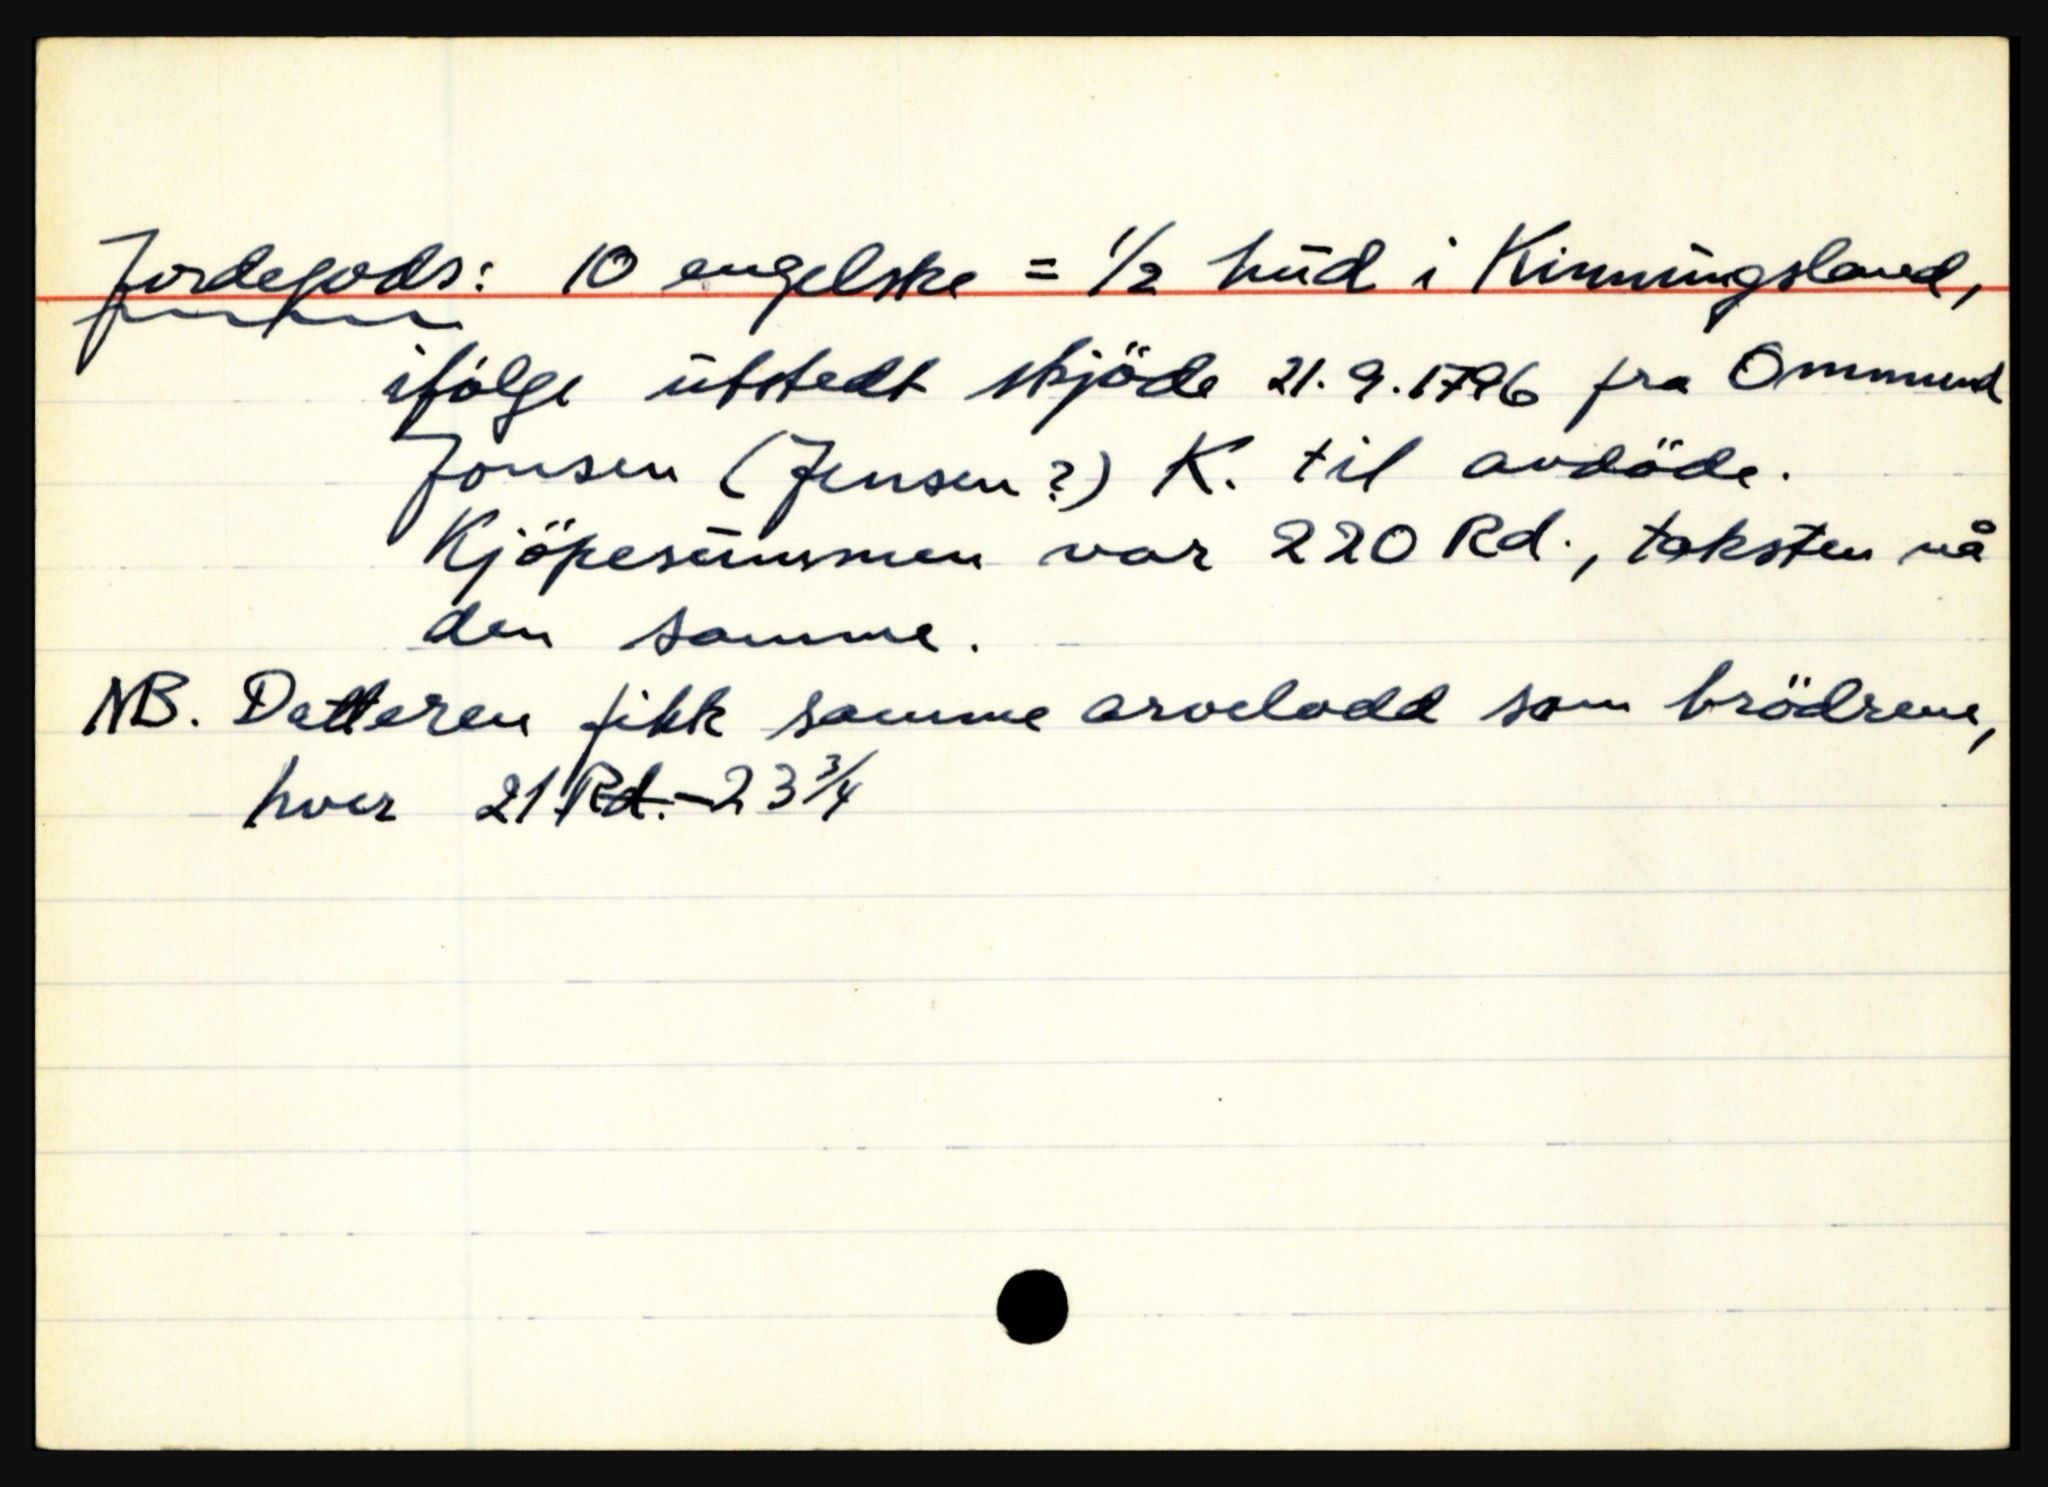 Jordegods: 10 engelske = 1/2 hud i Kinningsland,
ifølge utstedt skjöde 21.9.1796 fra Ommund
Jonsen (Jensen?) K. til avdöde.
Kjöpesummen var 220 Rd., taksten nå
den samme.
NB. Datteren fikk samme arvelodd som brödrene,
hver 21 Rd.-23 3/4